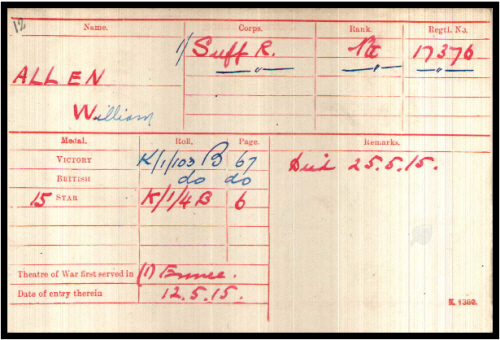 12
Name. Corps. Rank. Regtl. No.
1/ Suff R. Pte 17376
ALLEN — " — — " — — " —
William
Medal. Roll. Page. Remarks.
VICTORY K/1/103 B 67 Died 25.5.15.
BRITISH do do
15 STAR K/1/4 B 6
Theatre of War first served in (1) France.
Date of entry therein 12.5.15.
K. 1380.